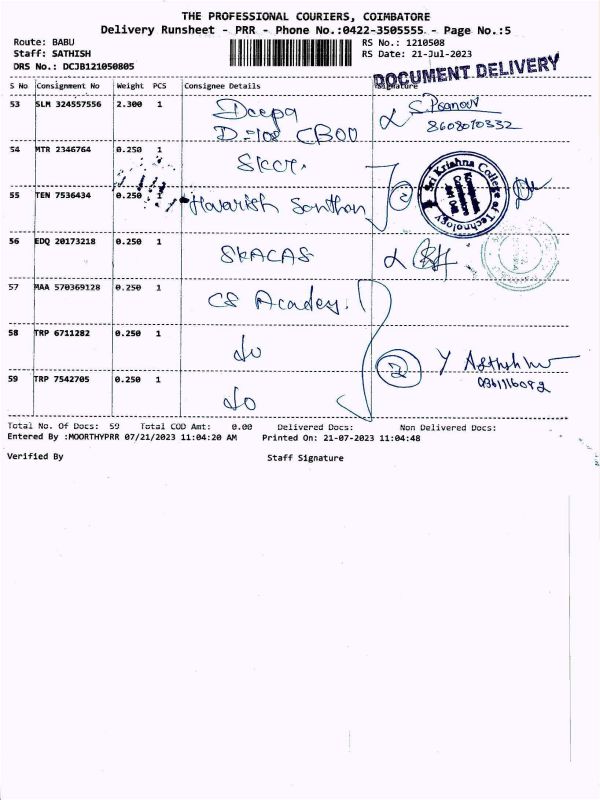 THE PROFESSIONAL COURIERS, COIMBATORE
Delivery Runsheet - PRR - Phone No.:0422-3505555. - Page No.:5
Route: BABU
RS No.: 1210508
Staff: SATHISH
RS Date: 21-Jul-2023
DRS No.: DCJB121050805
DOCUMENT DELIVERY
S No Consignment No Weight PCS Consignee Details Signature
53 SLM 324557556 2.300 1 Deepa
D-108 CBOO
8608070332
54 MTR 2346764 0.250 1 SKCT.
55 TEN 7536434 0.250 1 Santhan
2
Sri Krishna College of Technology
56 EDQ 20173218 0.250 1 SKACAS
57 MAA 570369128 0.250 1 CS Academy.
58 TRP 6711282 0.250 1 do
2
59 TRP 7542705 0.250 1 do
Total No. Of Docs: 59 Total COD Amt: 0.00 Delivered Docs: Non Delivered Docs:
Entered By :MOORTHYPRR 07/21/2023 11:04:20 AM Printed On: 21-07-2023 11:04:48
Verified By Staff Signature